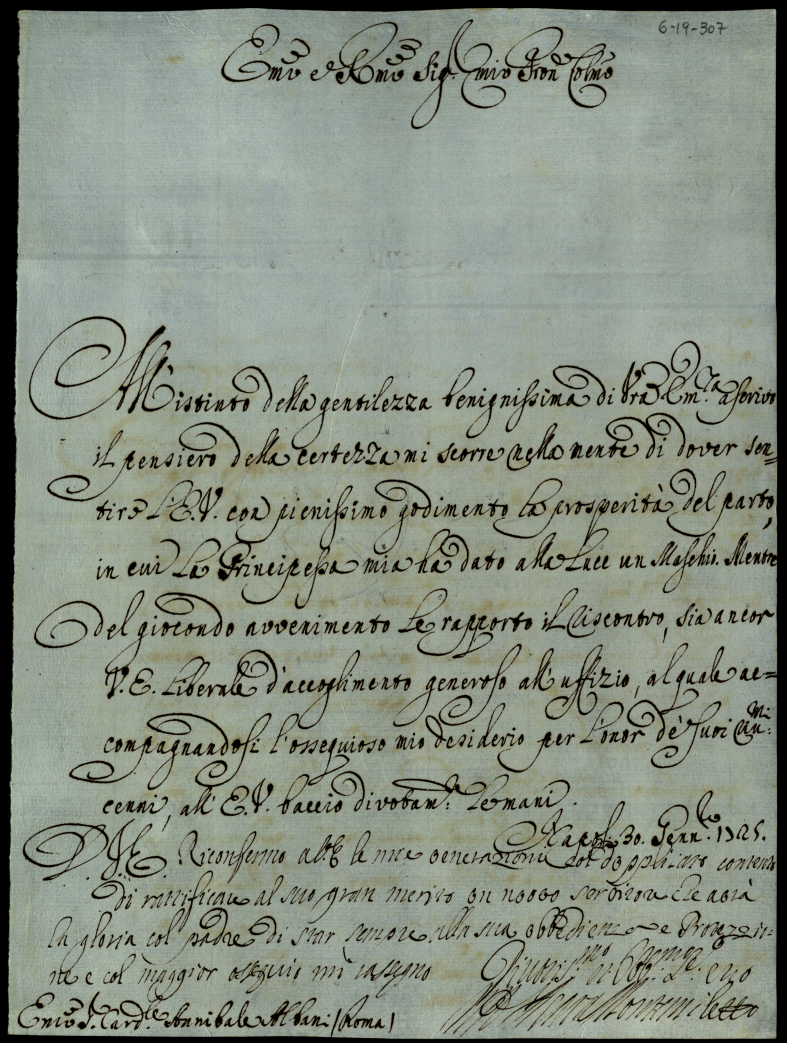 6-19-307
Emo e Rmo Sigr mio Pron Colmo
All'istinto della gentilezza benignissima di Vra Emza ascrivo
il pensiero della certezza mi scorre nella mente di dover sen=
tire L'E.V. con pienissimo godimento la prosperità del parto,
in cui la Principessa mia ha dato alla luce un Maschio. Mentre
del giocondo avvenimento le rapporto il riscontro, sia ancor
V.E. liberale d'accoglimento generoso all'uffizio, al quale ac=
compagnandosi l'ossequioso mio desiderio per l'onor de' suoi
cenni, all'E.V. baccio divotamte le mani.
Napoli 30. Gennro 1725.
Riconfermo all'E. le mie venerazioni col
di ratificare al suo gran merito un nuovo servitore che avrà
la gloria col padre di star sempre alla sua obbedienza e Protezzio-
ne e col maggior ossequio mi rassegno
Emo Sr Cardle Annibale Albani (Roma)